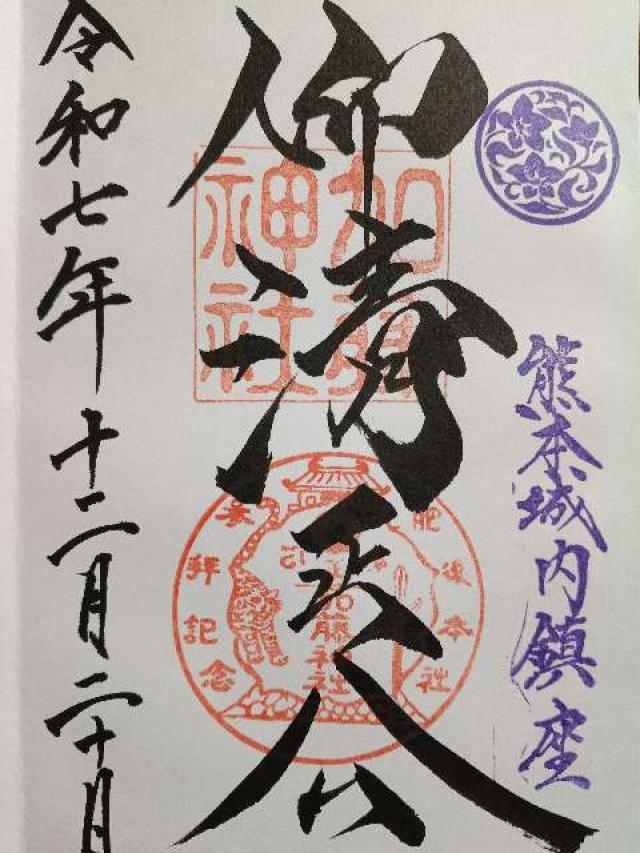 熊本城内鎮座
仰清正公
加藤
神社
肥後本社
拜記念
加藤神社
令和七年十二月二十日